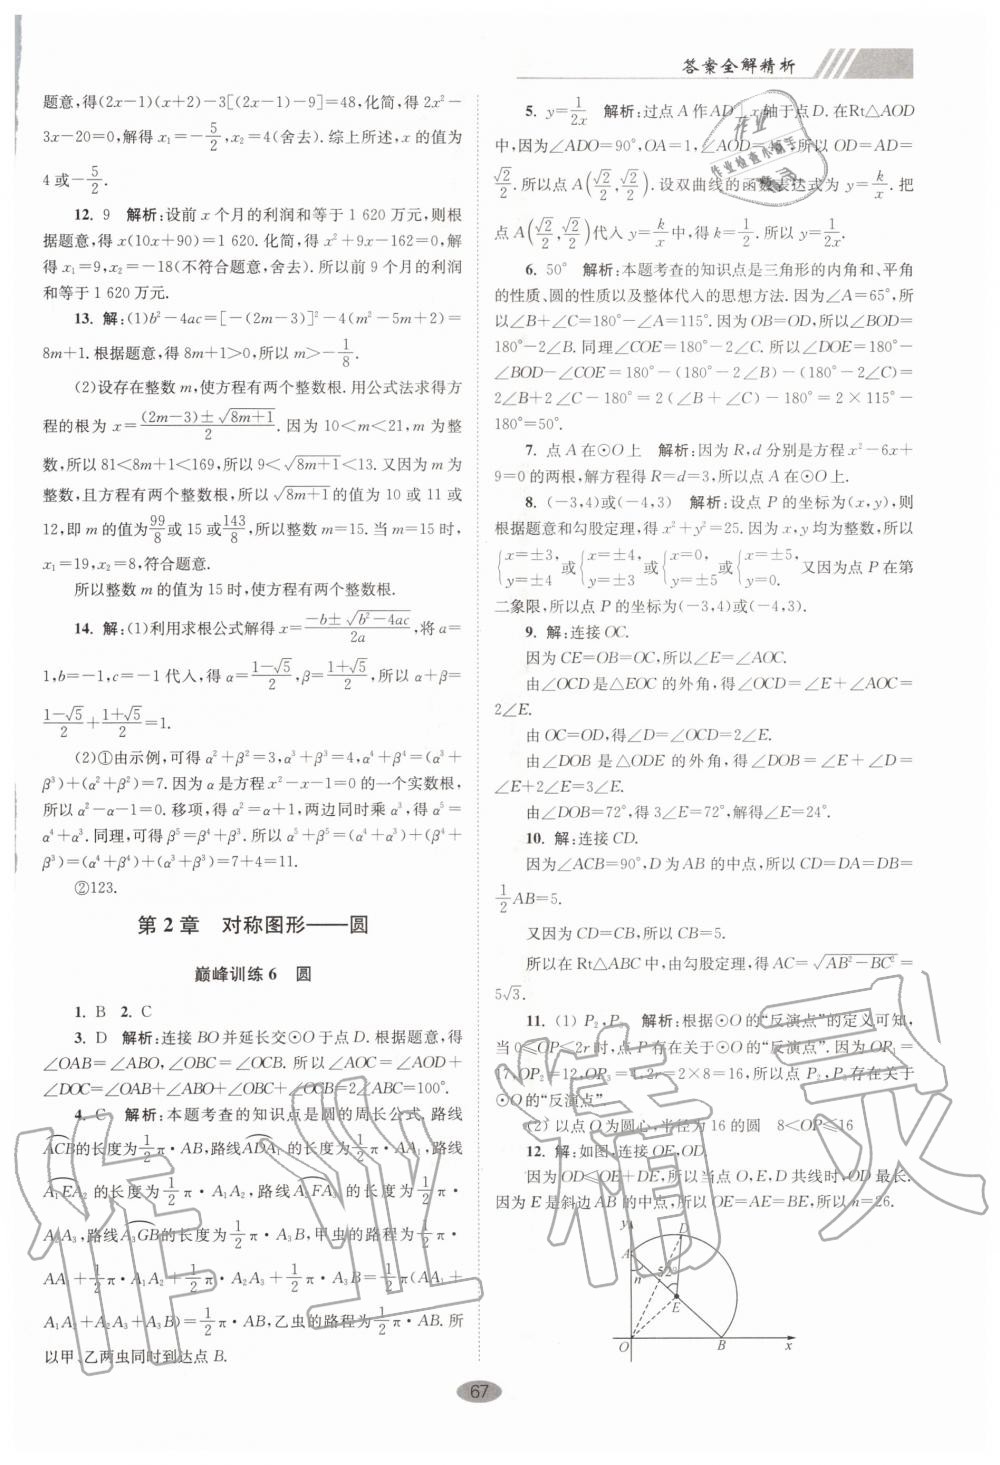 答案全解精析
题意,得(2x-1)(x+2)-3[(2x-1)-9]=48,化简,得2x²-
3x-20=0,解得x₁=-5/2,x₂=4(舍去).综上所述,x的值为
4或-5/2.
12. 9 解析:设前x个月的利润和等于1 620万元,则根
据题意,得x(10x+90)=1 620.化简,得x²+9x-162=0,解
得x₁=9,x₂=-18(不符合题意,舍去).所以前9个月的利润
和等于1 620万元.
13. 解:(1)b²-4ac=[-(2m-3)]²-4(m²-5m+2)=
8m+1.根据题意,得8m+1>0,所以m>-1/8.
(2)设存在整数m,使方程有两个整数根.用公式法求得方
程的根为x=((2m-3)±√(8m+1))/2.因为10<m<21,m为整
数,所以81<8m+1<169,所以9<√(8m+1)<13.又因为m为
整数,且方程有两个整数根,所以√(8m+1)的值为10或11或
12,即m的值为99/8或15或143/8,所以整数m=15.当m=15时,
x₁=19,x₂=8,符合题意.
所以整数m的值为15时,使方程有两个整数根.
14. 解:(1)利用求根公式解得x=(-b±√(b²-4ac))/2a,将a=
1,b=-1,c=-1代入,得α=(1-√5)/2,β=(1+√5)/2,所以α+β=
(1-√5)/2+(1+√5)/2=1.
(2)①由示例,可得α²+β²=3,α³+β³=4,α⁴+β⁴=(α³+
β³)+(α²+β²)=7.因为α是方程x²-x-1=0的一个实数根,
所以α²-α-1=0.移项,得α²=α+1,两边同时乘α³,得α⁵=
α⁴+α³.同理,可得β⁵=β⁴+β³.所以α⁵+β⁵=(α⁴+α³)+(β⁴+
β³)=(α⁴+β⁴)+(α³+β³)=7+4=11.
②123.
第2章 对称图形——圆
巅峰训练6 圆
1. B 2. C
3. D 解析:连接BO并延长交⊙O于点D.根据题意,得
∠OAB=∠ABO,∠OBC=∠OCB.所以∠AOC=∠AOD+
∠DOC=∠OAB+∠ABO+∠OBC+∠OCB=2∠ABC=100°.
4. C 解析:本题考查的知识点是圆的周长公式.路线
ACB的长度为1/2π·AB,路线ADA₁的长度为1/2π·AA₁,路线
A₁EA₂的长度为1/2π·A₁A₂,路线A₂FA₃的长度为1/2π·
A₂A₃,路线A₃GB的长度为1/2π·A₃B,甲虫的路程为1/2π·
AA₁+1/2π·A₁A₂+1/2π·A₂A₃+1/2π·A₃B=1/2π·(AA₁+
A₁A₂+A₂A₃+A₃B)=1/2π·AB,乙虫的路程为1/2π·AB.所
以甲、乙两虫同时到达点B.
5. y=1/2x 解析:过点A作AD⊥x轴于点D.在Rt△AOD
中,因为∠ADO=90°,OA=1,∠AOD=45°,所以OD=AD=
√2/2.所以点A(√2/2,√2/2).设双曲线的函数表达式为y=k/x.把
点A(√2/2,√2/2)代入y=k/x中,得k=1/2.所以y=1/2x.
6. 50° 解析:本题考查的知识点是三角形的内角和、平角
的性质、圆的性质以及整体代入的思想方法.因为∠A=65°,所
以∠B+∠C=180°-∠A=115°.因为OB=OD,所以∠BOD=
180°-2∠B.同理∠COE=180°-2∠C.所以∠DOE=180°-
∠BOD-∠COE=180°-(180°-2∠B)-(180°-2∠C)=
2∠B+2∠C-180°=2(∠B+∠C)-180°=2×115°-
180°=50°.
7. 点A在⊙O上 解析:因为R,d分别是方程x²-6x+
9=0的两根,解方程得R=d=3,所以点A在⊙O上.
8. (-3,4)或(-4,3) 解析:设点P的坐标为(x,y),则
根据题意和勾股定理,得x²+y²=25.因为x,y均为整数,所以
{x=±3, y=±4 或{x=±4, y=±3 或{x=0, y=±5 或{x=±5, y=0. 又因为点P在第
二象限,所以点P的坐标为(-3,4)或(-4,3).
9. 解:连接OC.
因为CE=OB=OC,所以∠E=∠AOC.
由∠OCD是△EOC的外角,得∠OCD=∠E+∠AOC=
2∠E.
由OC=OD,得∠D=∠OCD=2∠E.
由∠DOB是△ODE的外角,得∠DOB=∠E+∠D=
∠E+2∠E=3∠E.
由∠DOB=72°,得3∠E=72°,解得∠E=24°.
10. 解:连接CD.
因为∠ACB=90°,D为AB的中点,所以CD=DA=DB=
1/2AB=5.
又因为CD=CB,所以CB=5.
所以在Rt△ABC中,由勾股定理,得AC=√(AB²-BC²)=
5√3.
11. (1) P₂,P₃ 解析:根据⊙O的“反演点”的定义可知,
当0<OP≤2r时,点P存在关于⊙O的“反演点”.因为OP₁=
17,OP₂=12,OP₃=4,2r=2×8=16,所以P₂,P₃存在关于
⊙O的“反演点”.
(2) 以点O为圆心,半径为16的圆 8<OP≤16
12. 解:如图,连接OE,OD.
因为OD≤OE+DE,所以当点O,E,D共线时,OD最长.
因为E是斜边AB的中点,所以OE=AE=BE,所以n=26.
y
D
A
n
52°
E
O
B
x
67
作业精灵
作业
作业检查小助手
精灵